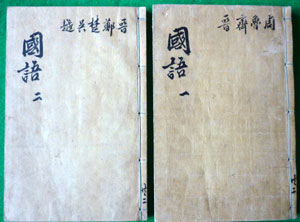 周魯齊晉
國語 一
晉鄭楚吳越
國語 二